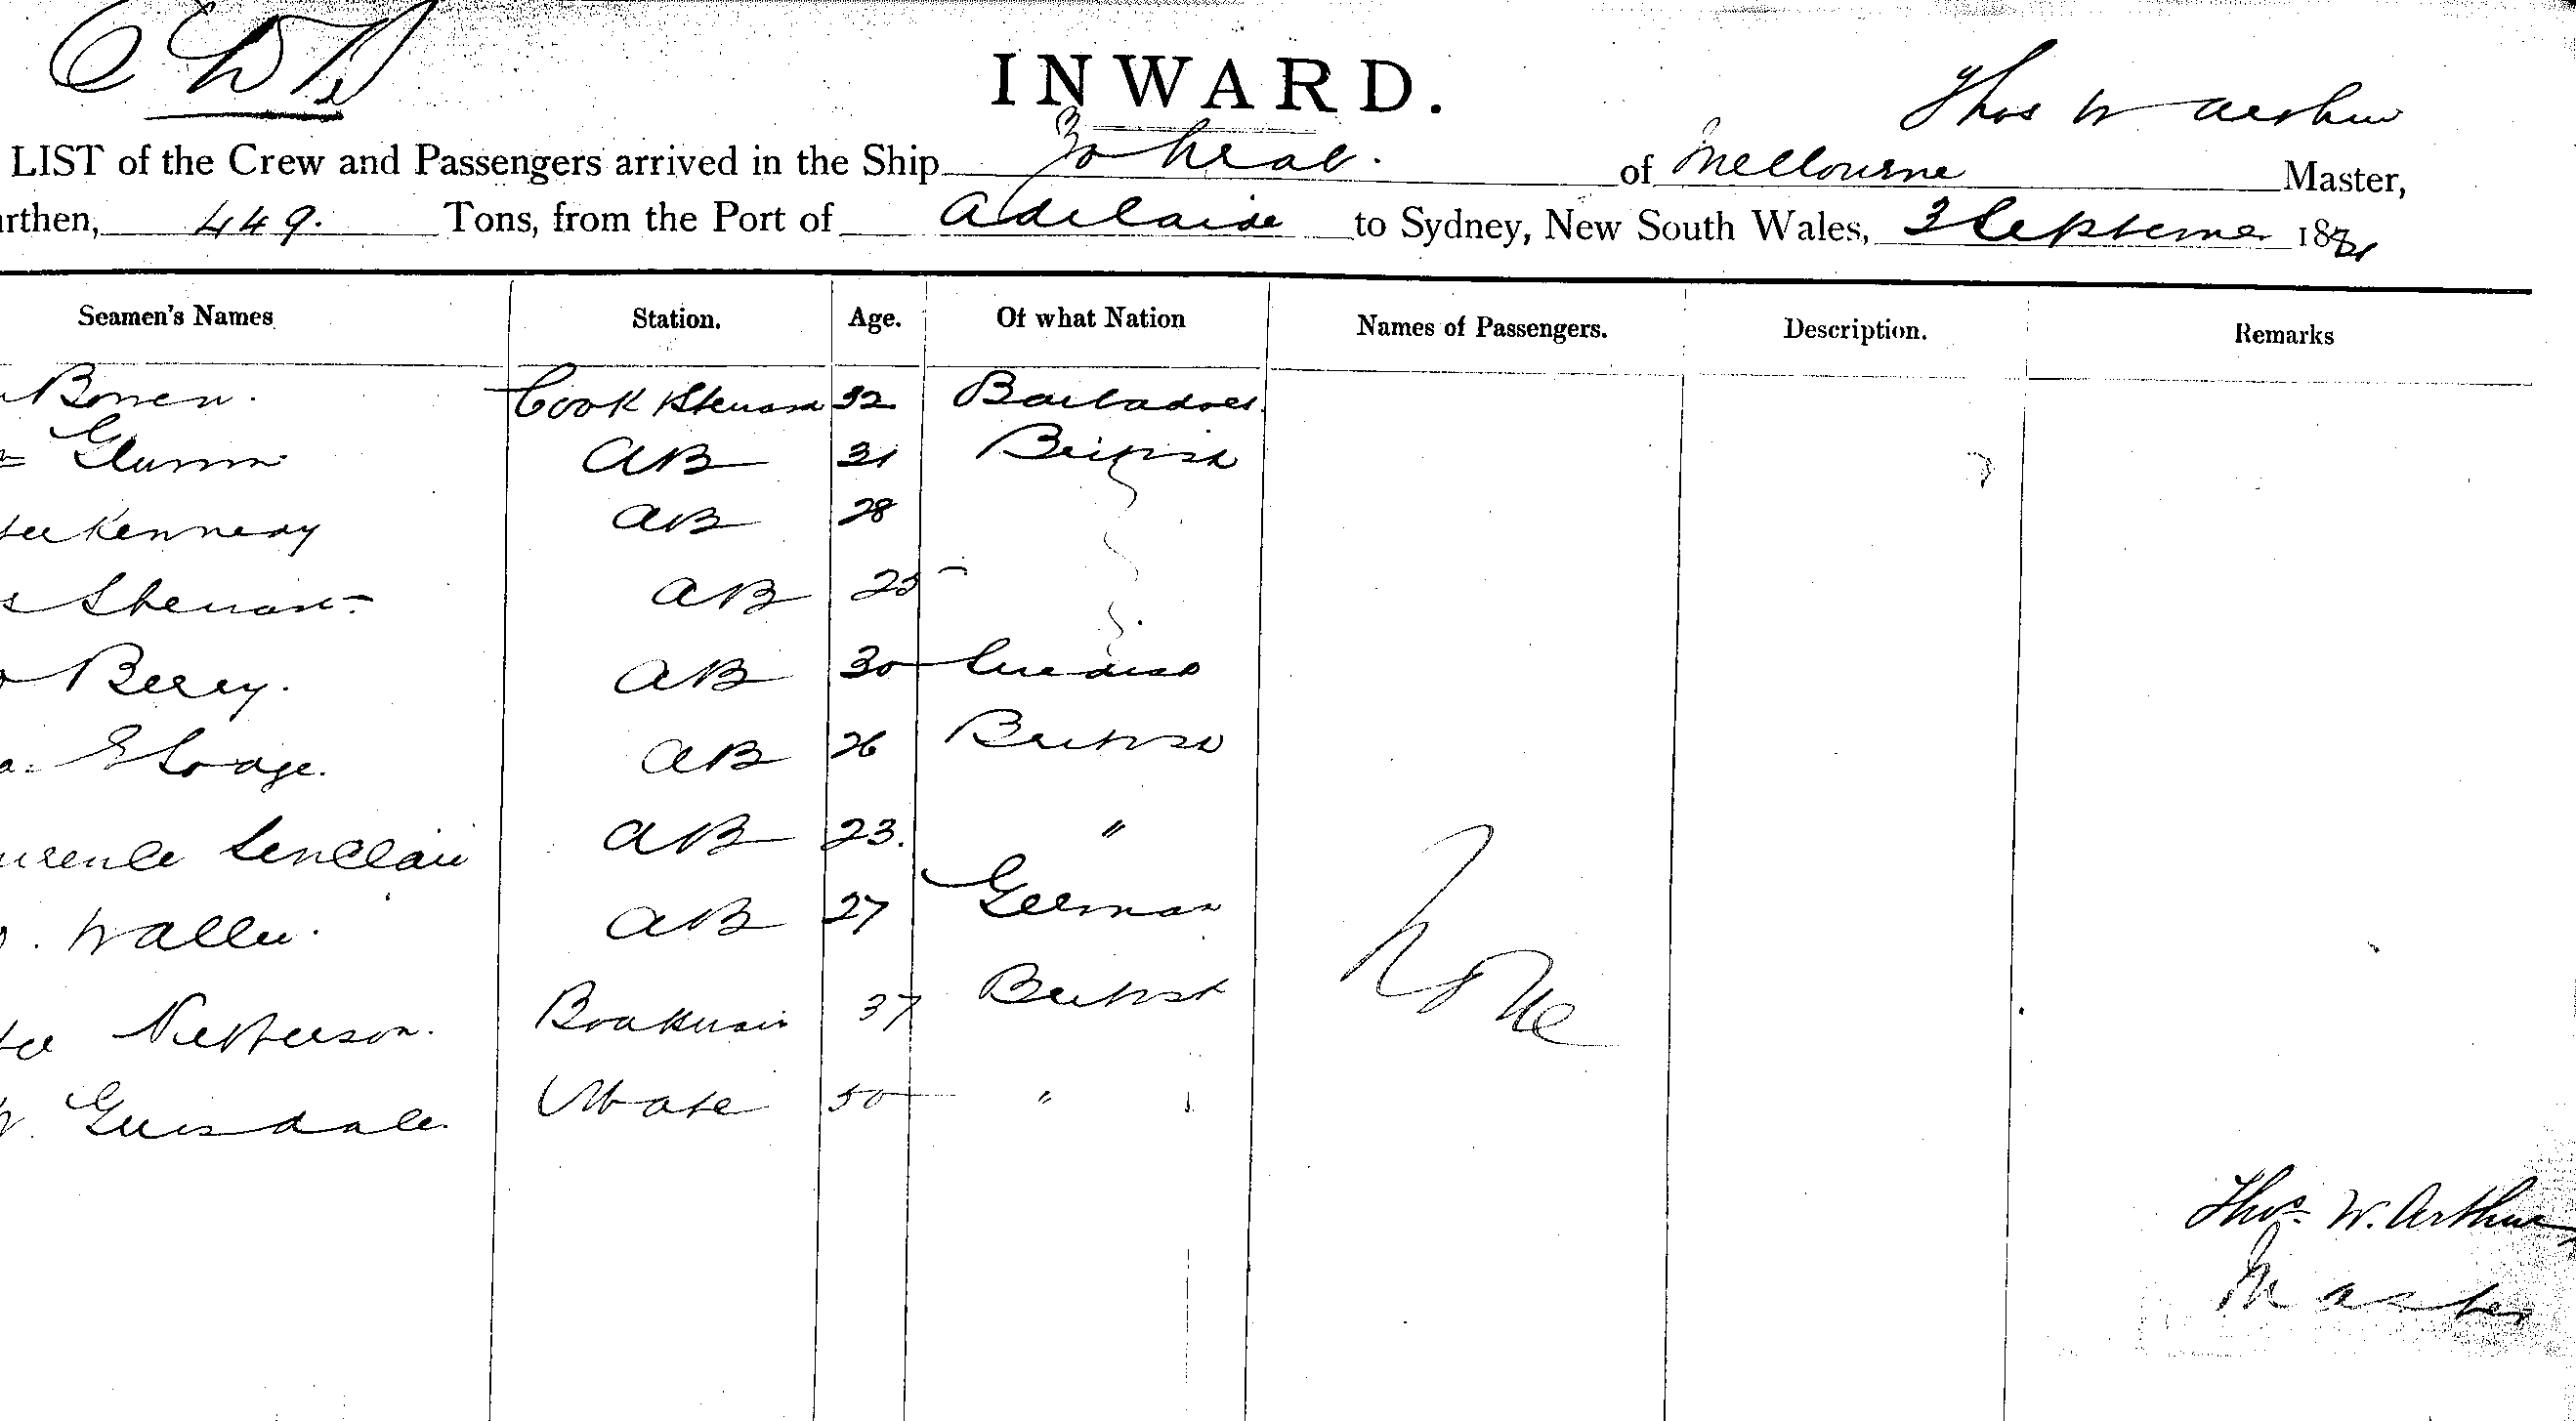 INWARD.
Thos W Arthur
LIST of the Crew and Passengers arrived in the Ship Zohrab. of Melbourne Master,
rthen, 449. Tons, from the Port of Adelaide to Sydney, New South Wales, 3 September 187
Seamen's Names Station. Age. Of what Nation Names of Passengers. Description. Remarks
Bowen. Cook & Steward 32 Barbadoes.
AB 31 British
Kennedy AB 28
Stewart AB 25
Berry. AB 30 Swedish
AB 26 British
Sinclair AB 23. "
AB 27 German
37 British
None
Mate 50 "
Thos. W. Arthur
Master